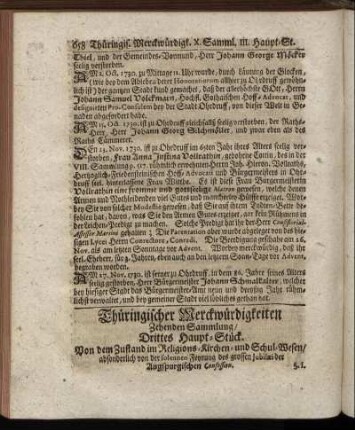 658 Thüringis. Merckwürdigk. X. Samml. III. Haupt-St.
Thiel, und der Gemeindes-Vormund, Herr Johann George Möcker
seelig verstorben.
AM 2. Oct. 1730. zu Mittage 11. Uhr wurde, durch Läutung der Glocken,
(wie bey dem Ableben derer Honoratiorum allhier zu Ohrdruff gewöhn-
lich ist) der gantzen Stadt kund gemachet, daß der allerhöchste GOtt, Herrn
Johann Samuel Volckmarn, Hochfl. Gothaischen Hoff-Advocat, und
designirten Pro-Consulem bey der Stadt Ohrdruff, von dieser Welt in Gna-
den abgefordert habe.
AM 15. Oct. 1730. ist zu Ohrdruff gleichfalls seelig verstorben, der Raths-
Herr, Herr Johann Georg und zwar eben als des
Raths Cämmerer.
Den 13. Nov. 1730. ist zu Ohrdruff im 65ten Jahr ihres Alters seelig ver-
storben, Frau Anna Justina Vollrathin, gebohrne
VIII. Sammlung, neulich erwehnten Herrn Joh. Vollraths,
Hertzoglich-Friedensteinischen Hoff-Advocati und Bürgermeisters in Ohr-
druff seel. hinterlassene Frau Witbe. Es ist diese Frau Bürgermeisterin
Vollrathin eine fromme und gottsfürchtige Matron gewesen, welche denen
Armen und Nothleidenden viel Gutes und mannichfaltige Hülffe erzeiget.
bey Sie vor solcher Modestie gewesen, daß Sie auf ihrem Todten-Bette be-
fohlen hat, davon, was Sie den Armen Gutes erzeiget, gar kein Rühmens in
der Leichen-Predigt zu machen. Solche Predigt hat der Herr Consistorial-
Assessor gehalten; Die Parentation aber wurde abgeleget von des
hiesigen Lycei Herrn Conrectore, Conradi. Die Beerdigung geschahe am 16.
Nov. als am letzten Sonntage vor Advent. Worbey merckwürdig, daß ihr
seel. Eheherr, für 3. Jahren, eben auch an den letztern Sonn-Tage vor Advent,
begraben worden.
AM 17. Nov. 1730. ist ferner zu Ohrdruff, in dem 86. Jahre seines Alters
seelig gestorben, Herr Bürgermeister Johann Schmalkalter, welcher
bey hiesiger Stadt das Bürgermeister-Amt neun und zwantzig Jahr rühm-
lichst verwaltet, und bey gemeiner Stadt viel löbliches gethan hat.
Thüringischer Merckwürdigkeiten
Zehenden Sammlung/
Drittes Haupt-Stück.
Von dem Zustand im Religions-Kirchen- und Schul-Wesen/
absonderlich von der solennen Feyrung des grossen Jubilæi der
Augspurgischen Confession.
§. I.